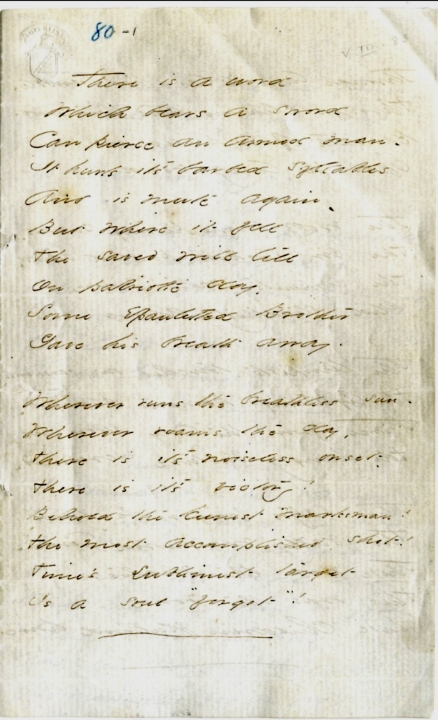 80-1
There is a word
Which bears a sword
Can pierce an armed man.
It hurls it's barbed syllables
And is mute again.
But where it fell
The saved will tell
On patriotic day.
Some Epauletted Brother
Gave his breath away.
Wherever runs the breathless sun.
Wherever roams the day,
There is it's noiseless onset.
There is it's victory!
Behold the keenest marksman!
The most accomplished shot!
Time's sublimest target
Is a soul "forgot"!